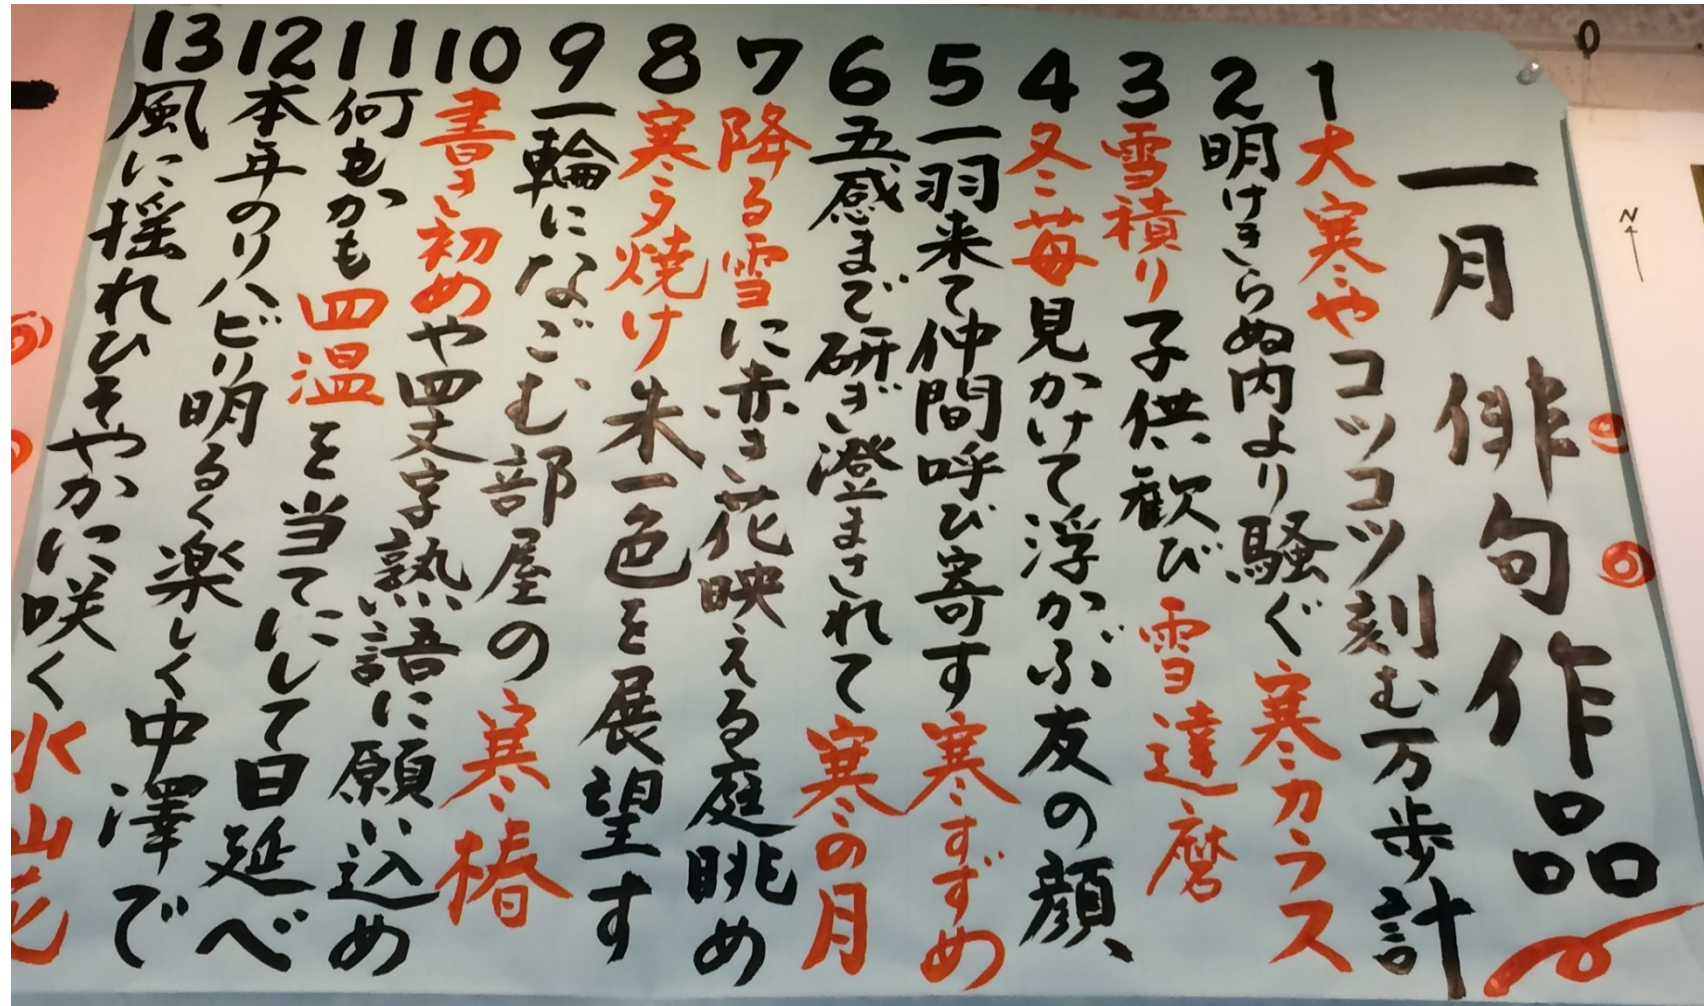 一月俳句作品
1 大寒やコツコツ刻む万歩計
2 明けきらぬ内より騒ぐ寒カラス
3 雪積り子供歓び雪達磨
4 冬苺見かけて浮かぶ友の顔、
5 一羽来て仲間呼び寄す寒すずめ
6 五感まで研ぎ澄まされて寒の月
7 降る雪に赤き花映える庭眺め
8 寒夕焼け朱一色を展望す
9 一輪になごむ部屋の寒椿
10 書き初めや四文字熟語に願い込め
11 何もかも四温を当てにして日延べ
12 本年のリハビリ明るく楽しく中澤で
13 風に揺れひそやかに咲く水仙花
N